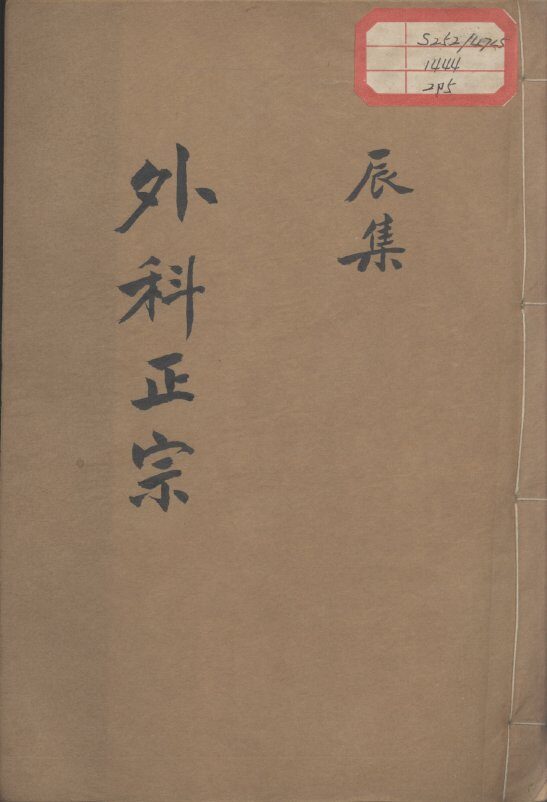 S252/4745
1444
2p5
辰集
外科正宗